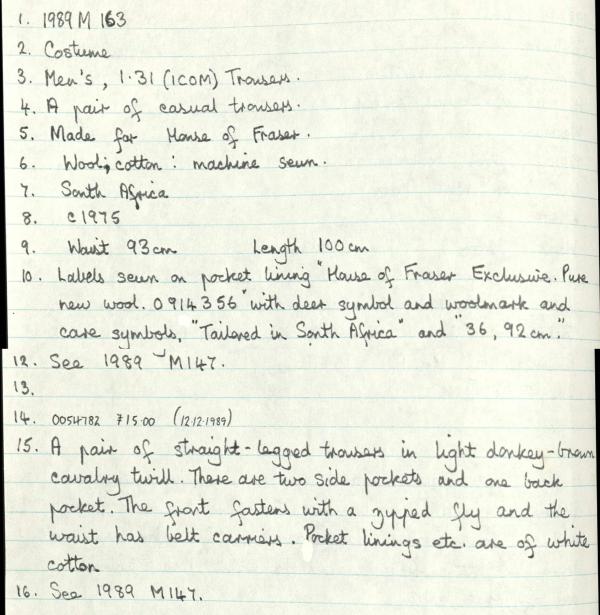 1. 1989 M 163
2. Costume
3. Men's, 1.31 (ICOM) Trousers.
4. A pair of casual trousers.
5. Made for House of Fraser.
6. Wool; cotton: machine sewn.
7. South Africa
8. c1975
9. Waist 93cm Length 100cm
10. Labels sewn on pocket lining "House of Fraser Exclusive. Pure
new wool. 0914356" with deer symbol and woolmark and
care symbols, "Tailored in South Africa" and "36, 92cm."
12. See 1989 M147.
13.
14. 0054782 £15.00 (12.12.1989)
15. A pair of straight-legged trousers in light donkey-brown
cavalry twill. There are two side pockets and one back
pocket. The front fastens with a zipped fly and the
waist has belt carriers. Pocket linings etc. are of white
cotton
16. See 1989 M147.